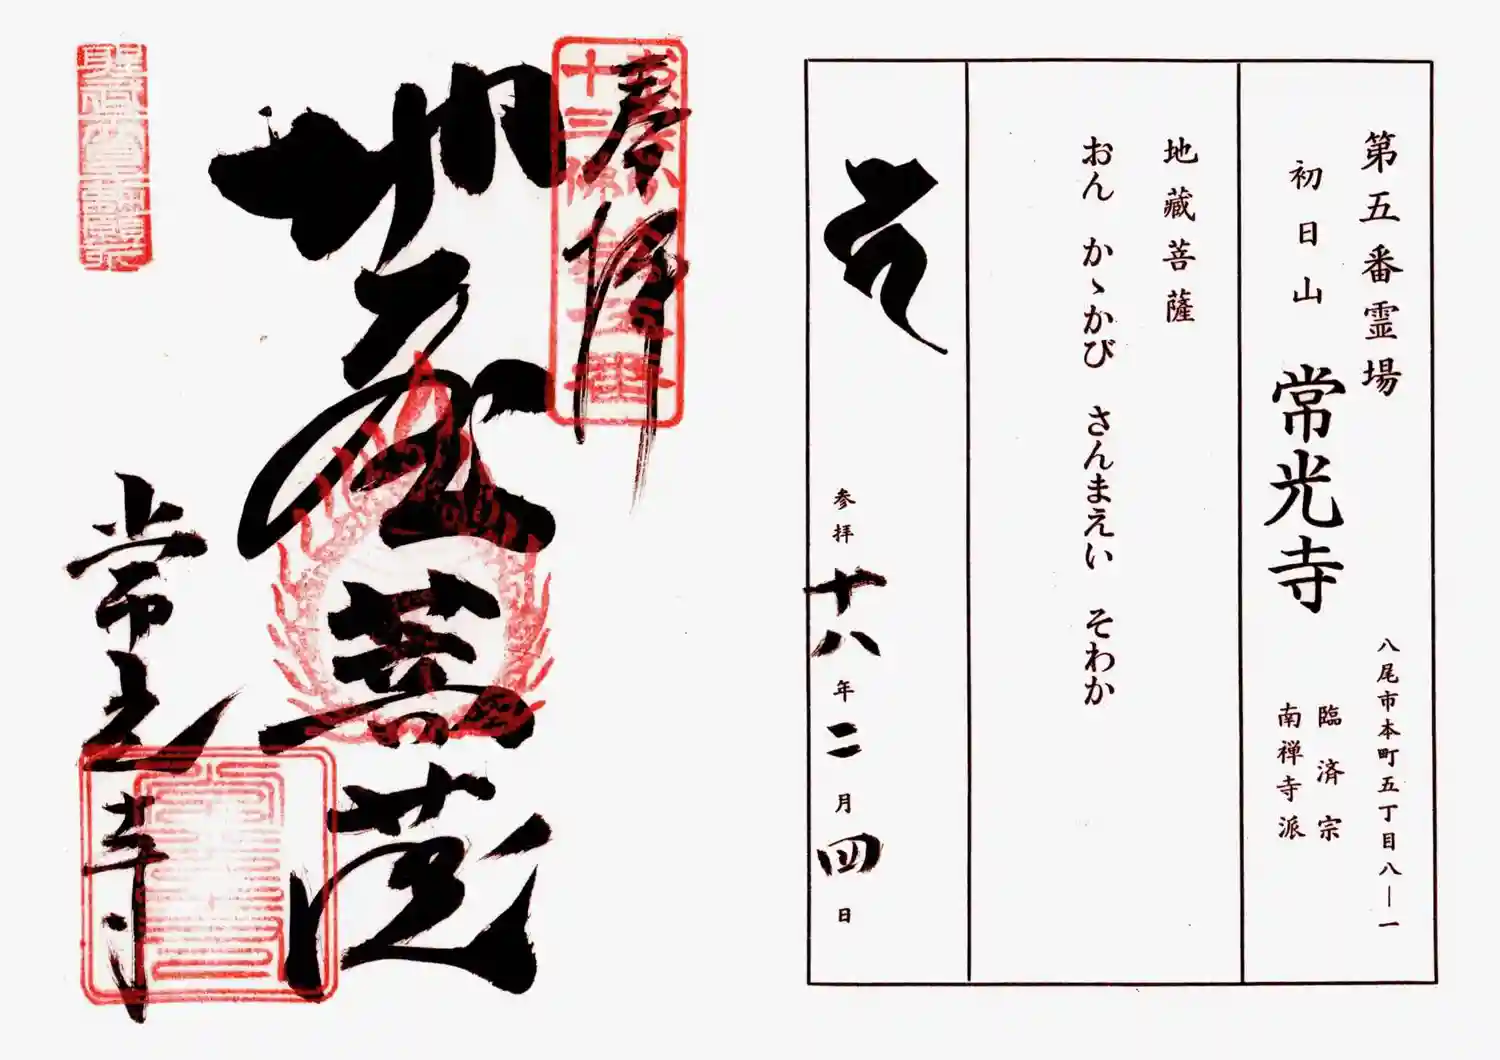 第五番霊場
初日山 常光寺
八尾市本町五丁目八―一
臨済宗
南禅寺派
地藏菩薩
おん かゝかび さんまえい そわか
参拝 十八年二月四日
奉拝
十三佛第五番
地蔵菩薩
常光寺